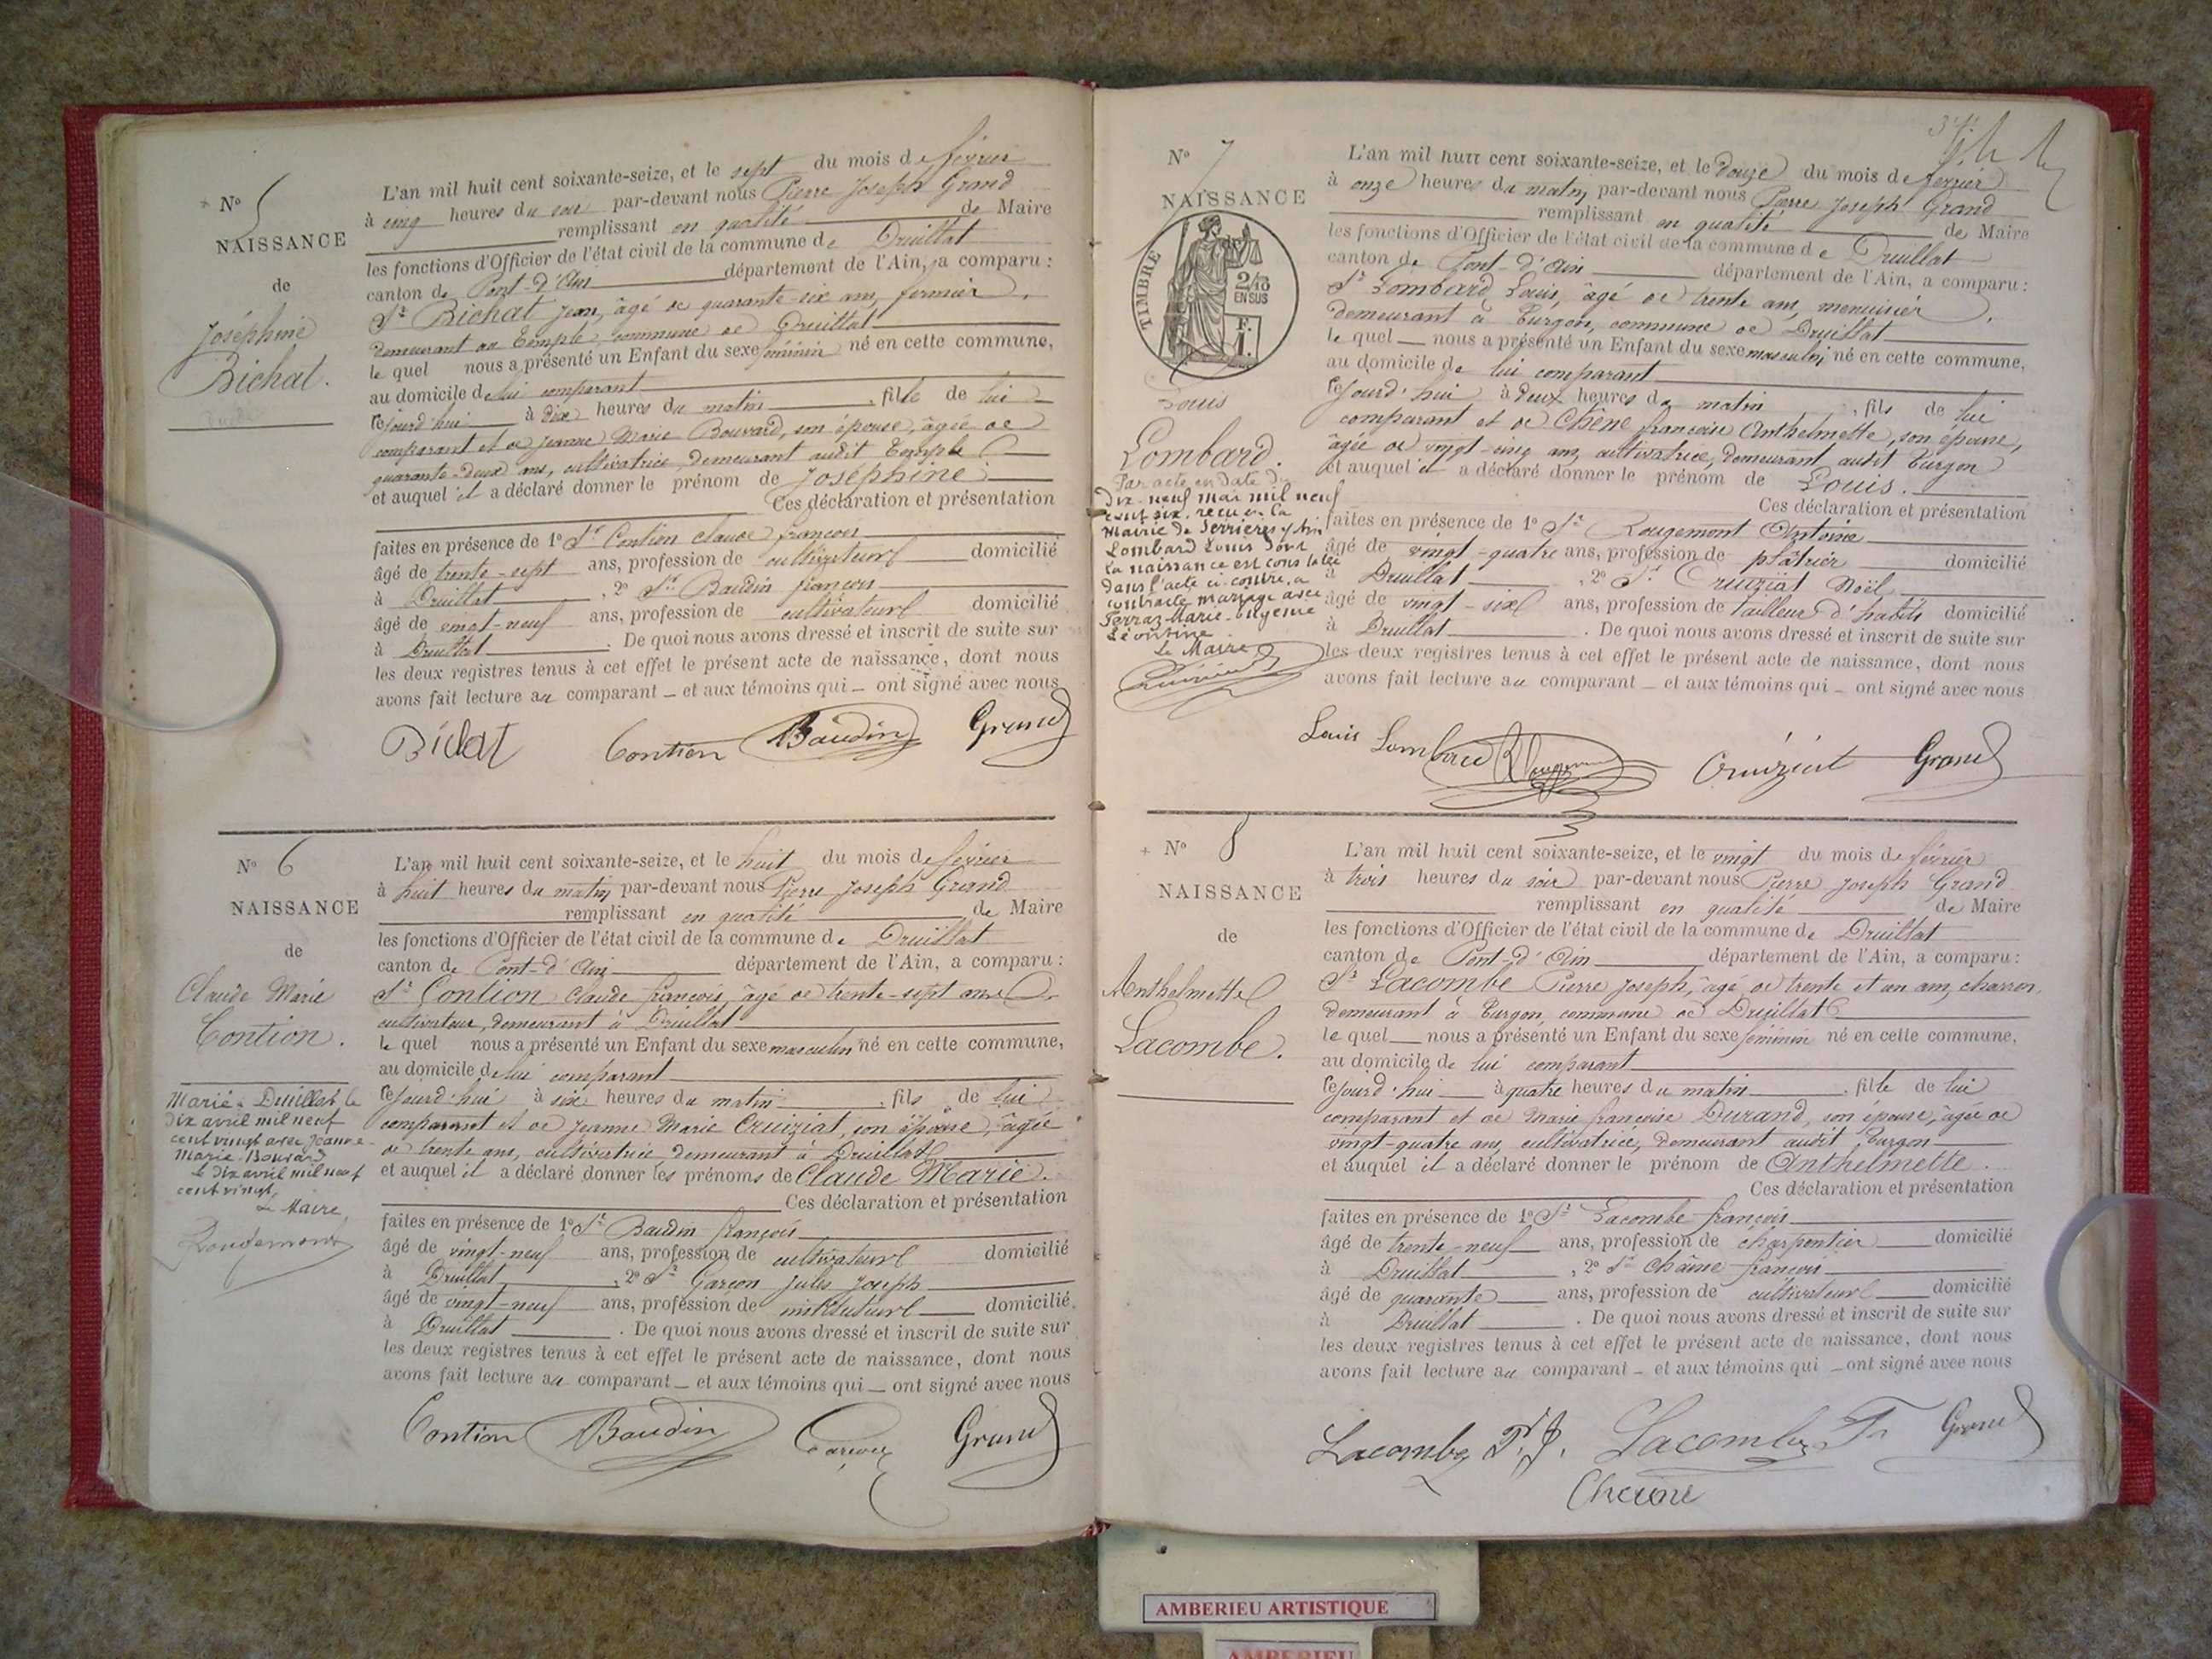 N° 5
NAISSANCE
de
Joséphine
Bichat.
L'an mil huit cent soixante-seize, et le sept du mois de février
à cinq heures du soir par-devant nous Pierre Joseph Grand
remplissant en qualité de Maire
les fonctions d'Officier de l'état civil de la commune de Druillat
canton de Pont-d'Ain département de l'Ain, a comparu :
Sr Bichat Jean, âgé de quarante-six ans, fermier,
demeurant au Temple commune de Druillat
le quel nous a présenté un Enfant du sexe féminin né en cette commune,
au domicile de lui comparant
cejourd'hui à dix heures du matin, fille de lui
comparant et de Jeanne Marie Bouvard, son épouse, âgée de
quarante-deux ans, cultivatrice, demeurant audit Temple
et auquel il a déclaré donner le prénom de Joséphine
Ces déclaration et présentation
faites en présence de 1° Sr Contion Claude françois
âgé de trente-sept ans, profession de cultivateur domicilié
à Druillat, 2° Sr Baudin françois
âgé de vingt-neuf ans, profession de cultivateur domicilié
à Druillat. De quoi nous avons dressé et inscrit de suite sur
les deux registres tenus à cet effet le présent acte de naissance, dont nous
avons fait lecture au comparant – et aux témoins qui – ont signé avec nous
Bichat Contion Baudin Grand
N° 6
NAISSANCE
de
Claude Marie
Contion.
Marié à Druillat le
dix avril mil neuf
cent vingt avec Jeanne
Marie Bouvard
le dix avril mil neuf
cent vingt,
Le Maire
L'an mil huit cent soixante-seize, et le huit du mois de février
à huit heures du matin par-devant nous Pierre Joseph Grand
remplissant en qualité de Maire
les fonctions d'Officier de l'état civil de la commune de Druillat
canton de Pont-d'Ain département de l'Ain, a comparu :
Sr Contion Claude françois, âgé de trente-sept ans
cultivateur, demeurant à Druillat
le quel nous a présenté un Enfant du sexe masculin né en cette commune,
au domicile de lui comparant
cejourd'hui à six heures du matin, fils de lui
comparant et de Jeanne Marie Cruiziat, son épouse, âgée
de trente ans, cultivatrice demeurant à Druillat
et auquel il a déclaré donner les prénoms de Claude Marie.
Ces déclaration et présentation
faites en présence de 1° Sr Baudin françois
âgé de vingt-neuf ans, profession de cultivateur domicilié
à Druillat, 2° Sr Garçon Jules Joseph
âgé de vingt-neuf ans, profession de instituteur domicilié
à Druillat. De quoi nous avons dressé et inscrit de suite sur
les deux registres tenus à cet effet le présent acte de naissance, dont nous
avons fait lecture au comparant – et aux témoins qui – ont signé avec nous
Contion Baudin Garçon Grand
N° 7
NAISSANCE
TIMBRE
2/10
EN SUS
F.
1.
Louis
Lombard.
Par acte en date du
dix-neuf mai mil neuf
cent six, reçu en la
Mairie de Serrières s/ Ain
Lombard Louis dont
la naissance est constatée
dans l'acte ci-contre, a
contracté mariage avec
Ferraz Marie-Eugénie
Léontine
Le Maire
L'an mil huit cent soixante-seize, et le douze du mois de février
à onze heures du matin par-devant nous Pierre Joseph Grand
remplissant en qualité de Maire
les fonctions d'Officier de l'état civil de la commune de Druillat
canton de Pont-d'Ain département de l'Ain, a comparu :
Sr Lombard Louis, âgé de trente ans, menuisier,
demeurant à Turgon, commune de Druillat
le quel nous a présenté un Enfant du sexe masculin né en cette commune,
au domicile de lui comparant
cejourd'hui à deux heures du matin, fils de lui
comparant et de Chêne françoise Anthelmette, son épouse,
âgée de vingt-cinq ans, cultivatrice, demeurant audit Turgon
et auquel il a déclaré donner le prénom de Louis.
Ces déclaration et présentation
faites en présence de 1° Sr Rougemont Antoine
âgé de vingt-quatre ans, profession de plâtrier domicilié
à Druillat, 2° Sr Cruiziat Noël
âgé de vingt-six ans, profession de tailleur d'habits domicilié
à Druillat. De quoi nous avons dressé et inscrit de suite sur
les deux registres tenus à cet effet le présent acte de naissance, dont nous
avons fait lecture au comparant – et aux témoins qui – ont signé avec nous
Louis Lombard Rougemont Cruiziat Grand
N° 8
NAISSANCE
de
Anthelmette
Lacombe.
L'an mil huit cent soixante-seize, et le vingt du mois de février
à trois heures du soir par-devant nous Pierre Joseph Grand
remplissant en qualité de Maire
les fonctions d'Officier de l'état civil de la commune de Druillat
canton de Pont-d'Ain département de l'Ain, a comparu :
Sr Lacombe Pierre Joseph, âgé de trente et un ans, charron,
demeurant à Turgon commune de Druillat
le quel nous a présenté un Enfant du sexe féminin né en cette commune,
au domicile de lui comparant
cejourd'hui à quatre heures du matin, fille de lui
comparant et de Marie françoise Durand, son épouse, âgée de
vingt-quatre ans, cultivatrice, demeurant audit Turgon
et auquel il a déclaré donner le prénom de Anthelmette.
Ces déclaration et présentation
faites en présence de 1° Sr Lacombe françois
âgé de trente-neuf ans, profession de charpentier domicilié
à Druillat, 2° Sr Chêne françois
âgé de quarante ans, profession de cultivateur domicilié
à Druillat. De quoi nous avons dressé et inscrit de suite sur
les deux registres tenus à cet effet le présent acte de naissance, dont nous
avons fait lecture au comparant – et aux témoins qui – ont signé avec nous
Lacombe P. J. Lacombe Fr Grand
AMBERIEU ARTISTIQUE
AMBERIEU